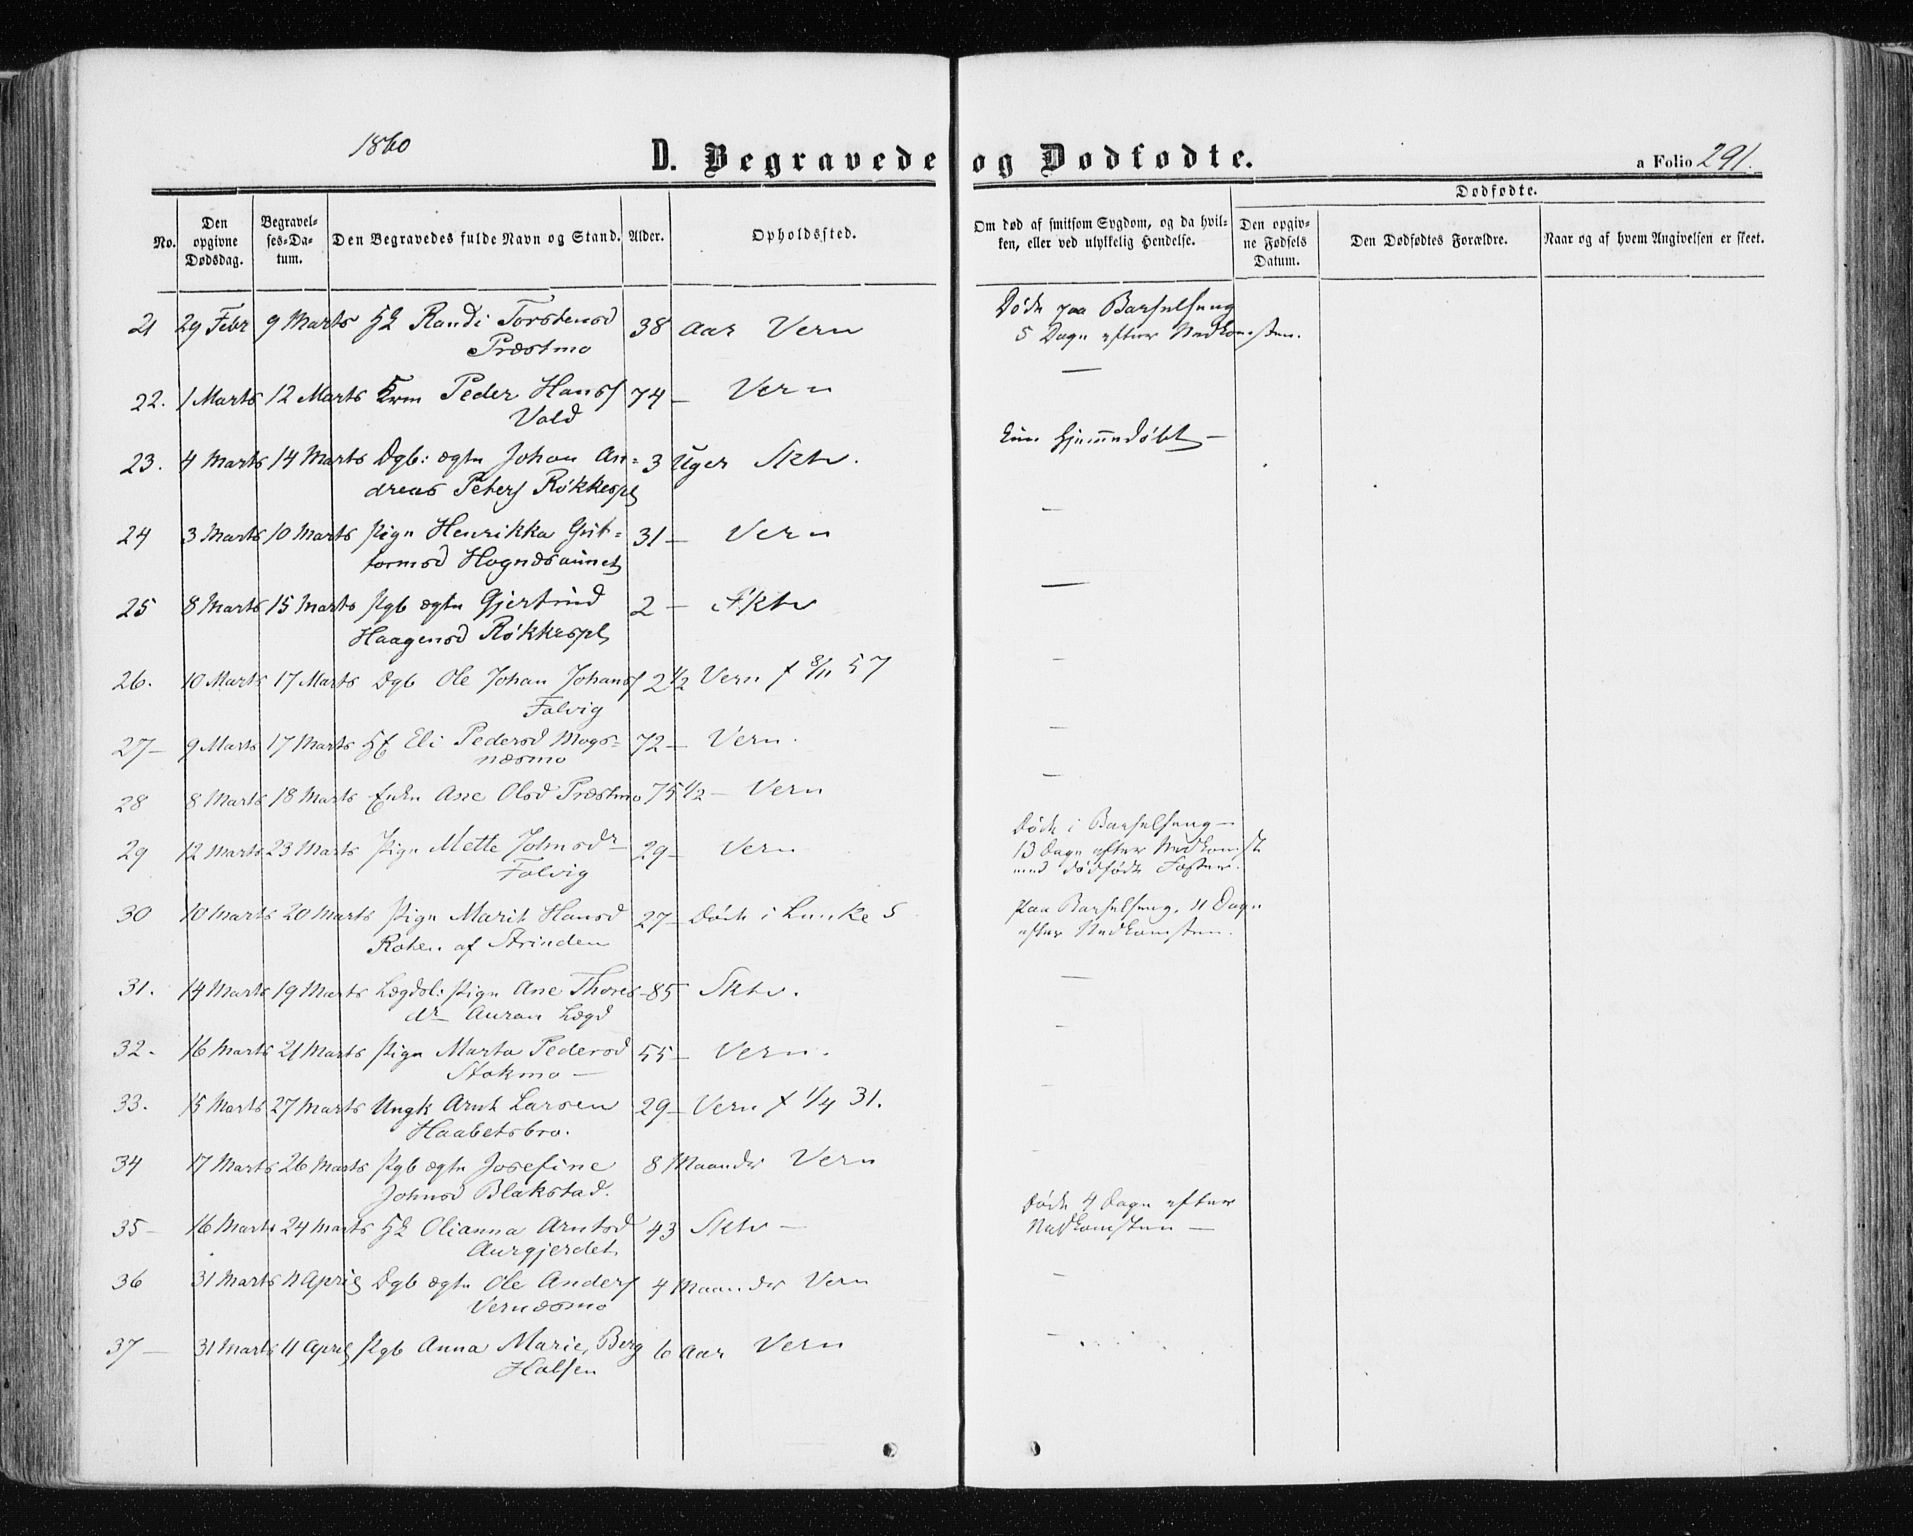 1860
D. Begravede og Dødfødte.
a Folio 291.
No.
Den opgivne Dødsdag.
Begravelses-Datum.
Den Begravedes fulde Navn og Stand.
Alder.
Opholdssted.
Om død af smitsom Sygdom, og da hvilken, eller ved ulykkelig Hendelse.
Dødfødte.
Den opgivne Fødsels Datum.
Den Dødfødtes Forældre.
Naar og af hvem Angivelsen er skeet.
21 29 Febr 9 Marts Randi Torstensd 38 Aar Vern Døde paa Barselseng
Præstmo 5 Dage efter Nedkomsten.
22. 1 Marts 12 Marts Peder Hans 74 — Vern —
Vold
23. 4 Marts 14 Marts Dgb: ægte Johan An= 3 Uger Sktv. kun hjemmedøbt —
dreas Peters Røkkespl
24 3 Marts 10 Marts Pige Henrikka Gut= 31 — Vern —
tormsd Hognæsaunet
25 8 Marts 15 Marts Pgb ægte Gjertrud 2 — Sktv —
Haagensd Røkkespl
26. 10 Marts 17 Marts Dgb Ole Johan Johans 2 1/2 Vern f 8/11 57 —
Folvig
27 — 9 Marts 17 Marts Eli Pedersd Mogs= 72 — Vern. —
næsmo
28 8 Marts 18 Marts Enke Ane Olsd Præstmo 75 1/2 — Vern —
29 12 Marts 23 Marts Pige Mette Johnsdr 29 — Vern Døde i Barselseng —
Folvig 13 Dage efter Nedkomst
med dødfødt Foster.
30 10 Marts 20 Marts Pige Marit Hansd 27 — Døde i Lunke S Paa Barselseng. 11 Dage
Roten af Strinden efter Nedkomsten.
31. 14 Marts 19 Marts Lægdsl: Pige Ane Thores- 85 Sktv. —
dr Auran Lægd
32. 16 Marts 21 Marts Pige Marta Pedersd 55 — Vern. —
Stokmo —
33. 15 Marts 27 Marts Ungk Arnt Larsen 29 — Vern f 1/4 31. —
Haabetsbro.
34 17 Marts 26 Marts Pgb ægte Josefine 8 Maander Vern —
Johnsd Blakstad.
35 — 16 Marts 24 Marts Olianna Arntsd 43 Sktv — Døde 4 Dage efter
Aurgjerdet Nedkomsten —
36 31 Marts 11 April Dgb ægte Ole Anders 4 Maander Vern —
Vernæsmo
37 — 31 Marts 11 April Pgb Anna Marie, Berg 6 Aar Vern —
Halsen